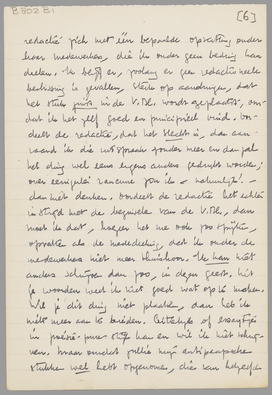 B 802 B1
[6]
redactie zich met één bepaalde opvatting onder
haar medewerkers, die ik onder geen beding kan
deelen. Ik zeg er, zoolang er geen redactioneele
beslissing is gevallen, slechts op aandringen, dat
het stuk juist in de V.Bl. wordt geplaatst, om-
dat ik het zelf goed en principieel vind. Oor-
deelt de redactie, dat het slecht is, dan aan-
vaard ik die uitspraak zonder meer en dan zal
het ding wel eens ergens anders gedrukt worden;
over eenigerlei rancune zou ik – natuurlijk! –
dan niet denken. Oordeelt de redactie het echter
in strijd met de beginselen van de V.Bl., dan
moet ik dat, hoezeer het me ook zou spijten,
opvatten als de mededeeling, dat ik onder de
medewerkers niet meer thuishoor. Ik kan niet
anders schrijven dan zoo, in dezen geest, met
je woorden weet ik niet goed wat op te maken.
Wil je dit ding niet plaatsen, dan heb ik
niets meer aan te bieden. Critiekjes of essaytjes
in poésie-pure stijl kan en wil ik niet schrij-
ven. Maar omdat jullie mijn antipaapsche
stukken wel hebt opgenomen, die van hetzelfde